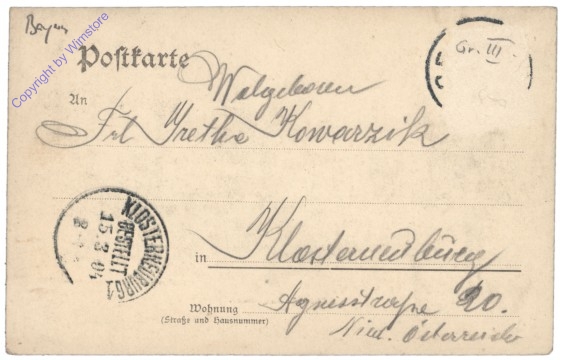 Bayern
Copyright by Wimstore
Gr. III
Postkarte
Wolgeboren
An
Frl Gretha Kowarzik
KLOSTERNEUBURG 1
BESTELLT
15.3.04
in Klosterneuburg
Wohnung Agnesstraße 20.
(Straße und Hausnummer)
Nied. Österreich